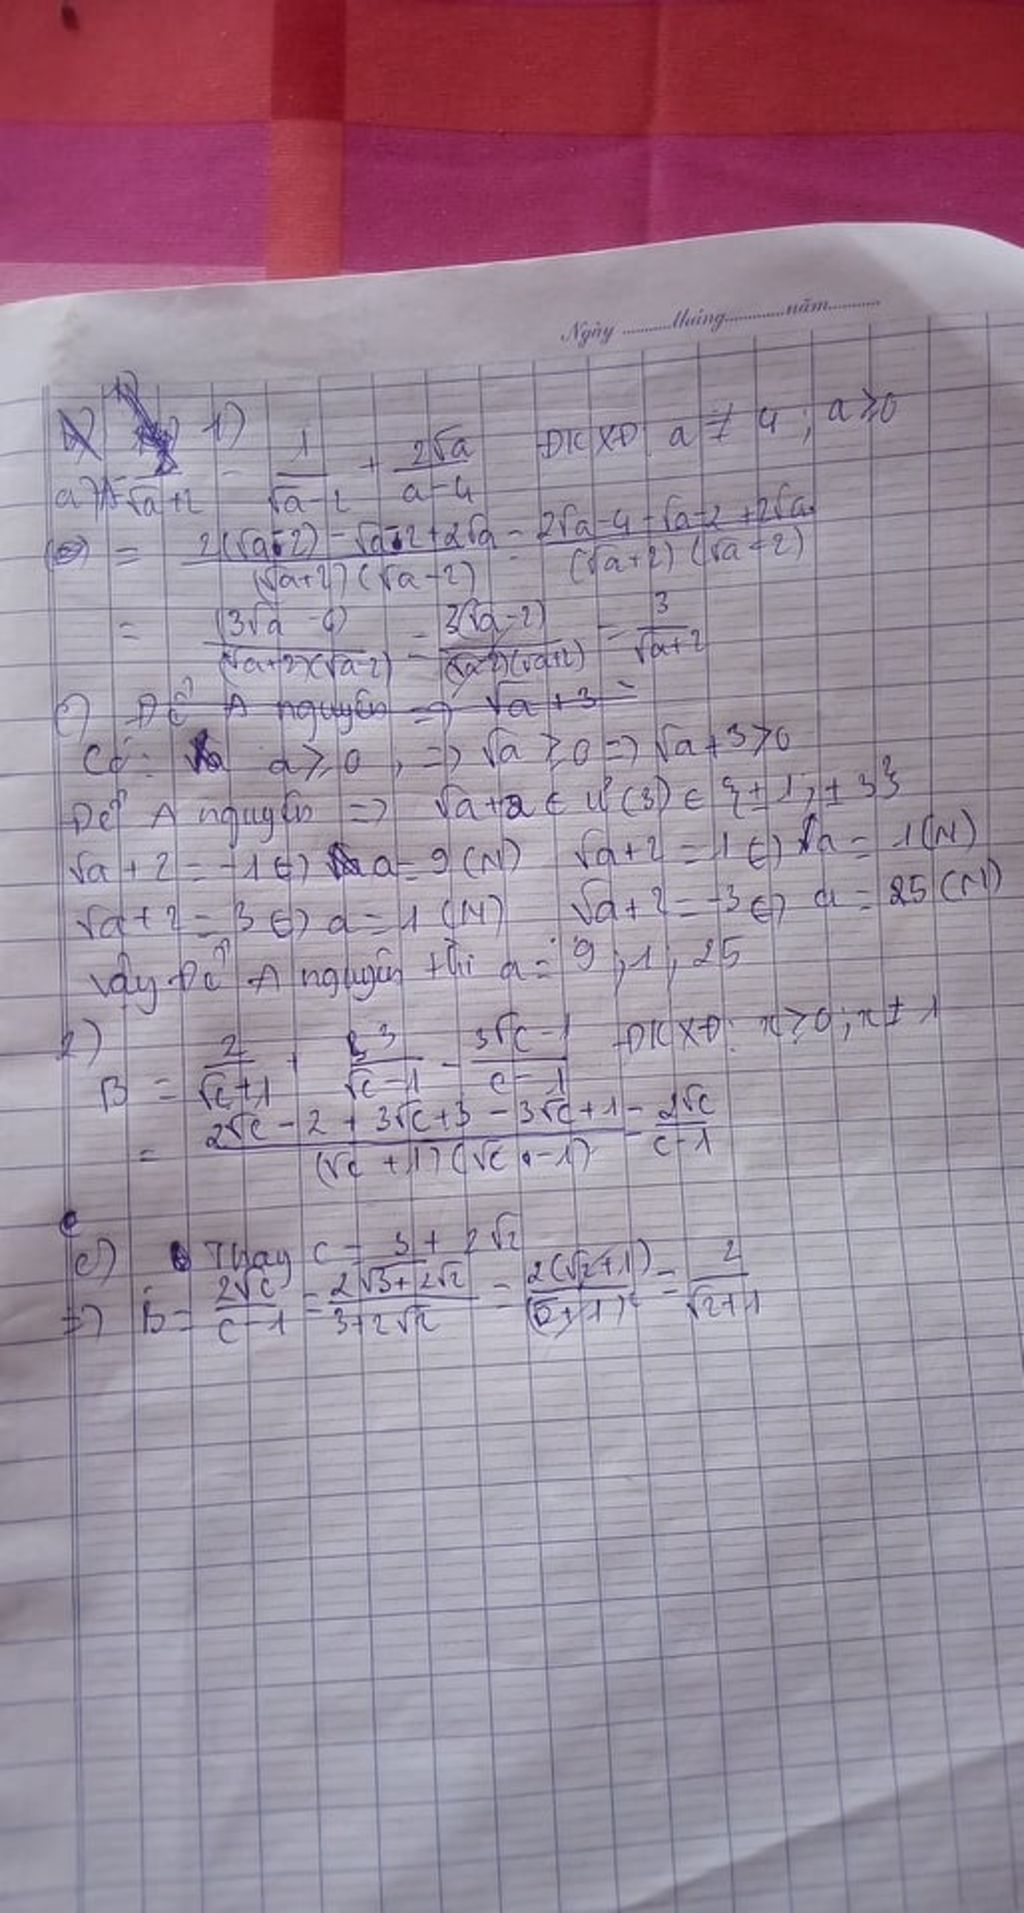 Ngày ............tháng..............năm............
1)
a) A = /√a+2 - 1/√a-2 + 2√a/a-4 ĐKXĐ a ≠ 4 ; a ≥ 0
= 2(√a-2) - √a-2 + 2√a/(√a+2)(√a-2) = 2√a-4-√a-2+2√a/(√a+2)(√a-2)
= 3√a - 6/(√a+2)(√a-2) = 3(√a-2)/(√a-2)(√a+2) = 3/√a+2
Để A nguyên => √a + 3 =
Có: a ≥ 0, => √a ≥ 0 => √a + 3 > 0
Để A nguyên => √a+2 ∈ Ư(3) ∈ {±1; ±3}
√a + 2 = -1 <=> a = 9 (N) √a + 2 = 1 <=> √a = 1 (N)
√a + 2 = 3 <=> a = 1 (N) √a + 2 = -3 <=> a = 25 (N)
Vậy Để A nguyên thì a = 9 ; 1 ; 25
2)
B = 2/√c+1 + 3/√c-1 - 3√c-1/c-1 ĐKXĐ: x ≥ 0 ; x ≠ 1
= 2√c - 2 + 3√c + 3 - 3√c + 1/(√c + 1)(√c - 1) = 2√c/c-1
c) Thay c = 3 + 2√2
=> B = 2√c/c-1 = 2√3+2√2/3+2√2 = 2(√2+1)/(√2+1)² = 2/√2+1